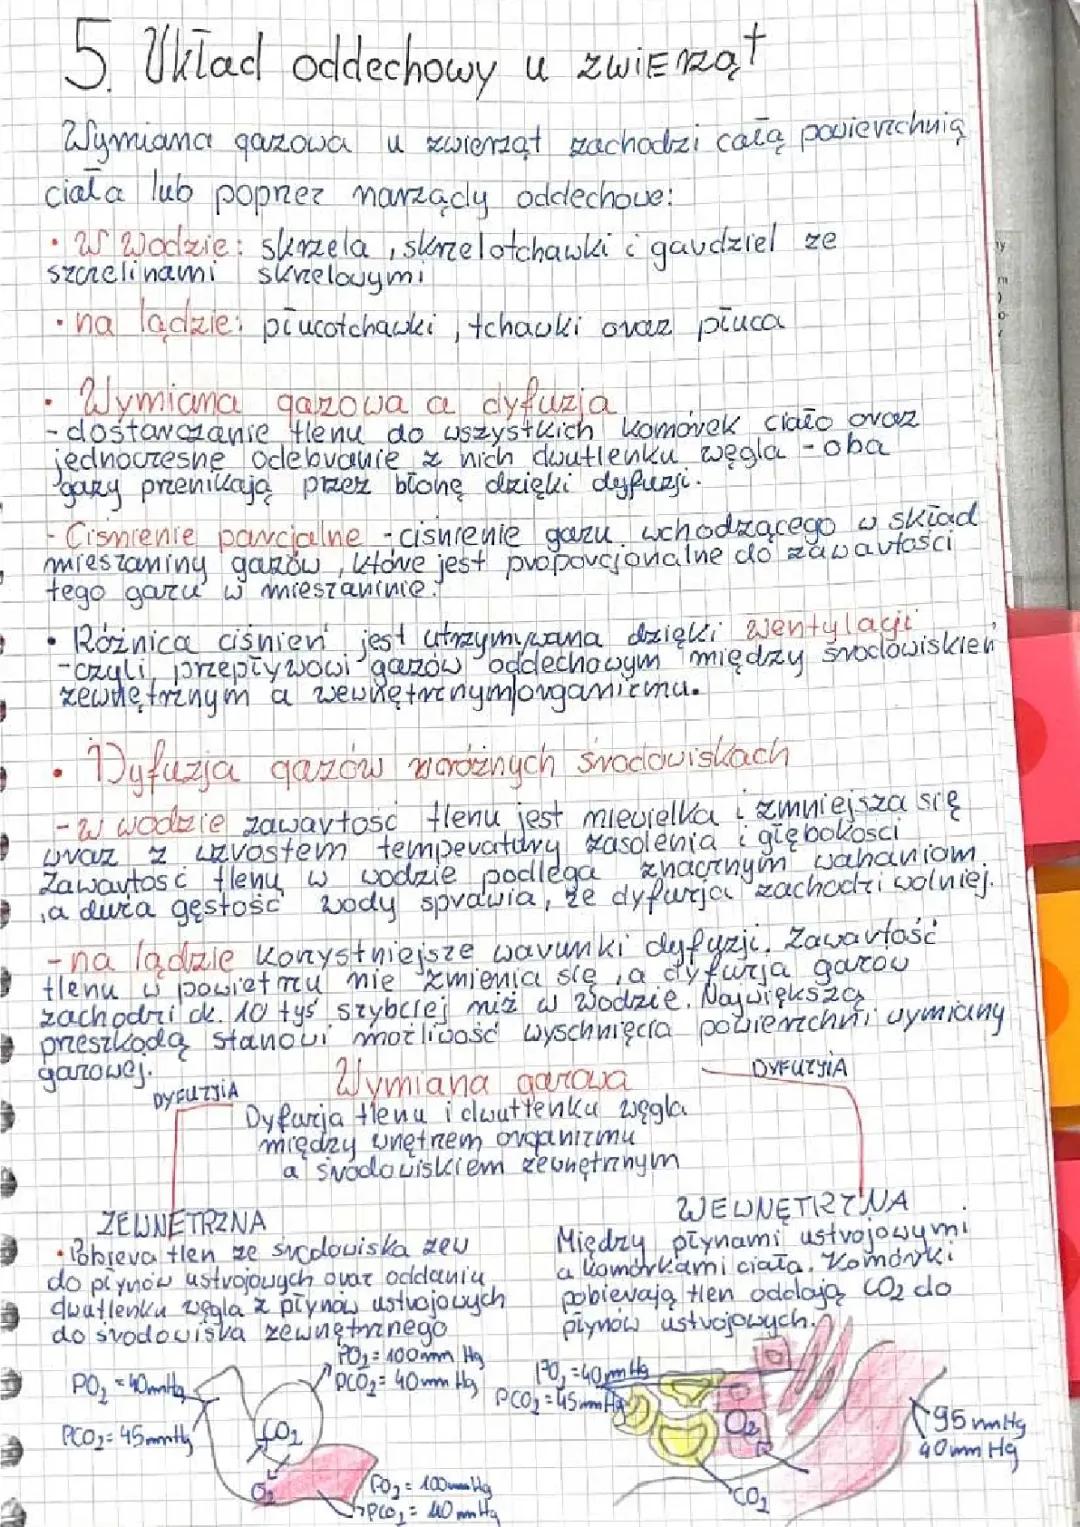 5. Układ oddechowy u zwierząt
Wymiana gazowa u zwierząt zachodzi całą powierzchnią
ciała lub poprzez narządy oddechowe:
• W wodzie: skrzela, skrzelotchawki i gardziel ze
szczelinami skrzelowymi
• na lądzie: płucotchawki, tchawki oraz płuca
• Wymiana gazowa a dyfuzja
- dostarczanie tlenu do wszystkich komórek ciało oraz
jednoczesne odebranie z nich dwutlenku węgla - oba
gazy przenikają przez błonę dzięki dyfuzji.
- Ciśnienie parcjalne - ciśnienie gazu wchodzącego w skład
mieszaniny gazów, które jest proporcjonalne do zawartości
tego gazu w mieszaninie.
• Różnica ciśnień jest utrzymywana dzięki wentylacji
- czyli przepływowi gazów oddechowym między środowiskien
zewnętrznym a wewnętrznym organizmu.
• Dyfuzja gazów w różnych środowiskach
- w wodzie zawartość tlenu jest niewielka i zmniejsza się
wraz z wzrostem temperatury zasolenia i głębokosci
Zawartość tlenu w wodzie podlega znacznym wahaniom.
, a duża gęstość wody sprawia, że dyfuzja zachodzi wolniej.
- na lądzie korzystniejsze warunki dyfuzji. Zawartość
tlenu w powietrzu nie zmienia się, a dyfuzja gazów
zachodzi ok. 10 tyś szybciej niż w wodzie. Największą
przeszkodą stanowi możliwość wyschnięcia powierzchni wymiany
gazowej.
DYFUZJIA Wymiana gazowa DYFUZJIA
Dyfuzja tlenu i dwutlenku węgla
między wnętrzem organizmu
a środowiskiem zewnętrznym
ZEWNĘTRZNA
• Pobiera tlen ze środowiska zew
do płynów ustrojowych oraz oddaniu
dwutlenku węgla z płynów ustrojowych
do środowiska zewnętrznego
WEWNĘTRZNA
Między płynami ustrojowymi
a komórkami ciała. Komórki
pobierają tlen oddają CO2 do
płynów ustrojowych.
PO2 = 40mmHg
PCO2 = 45mmHg
PO2 = 100mm Hg
PCO2 = 40mm Hg
CO2
O2
PO2 = 100mmHg
PCO2 = 40 mmHg
PO2 = 40mmHg
PCO2 = 45mmHg
O2
CO2
95 mmHg
40mm Hg